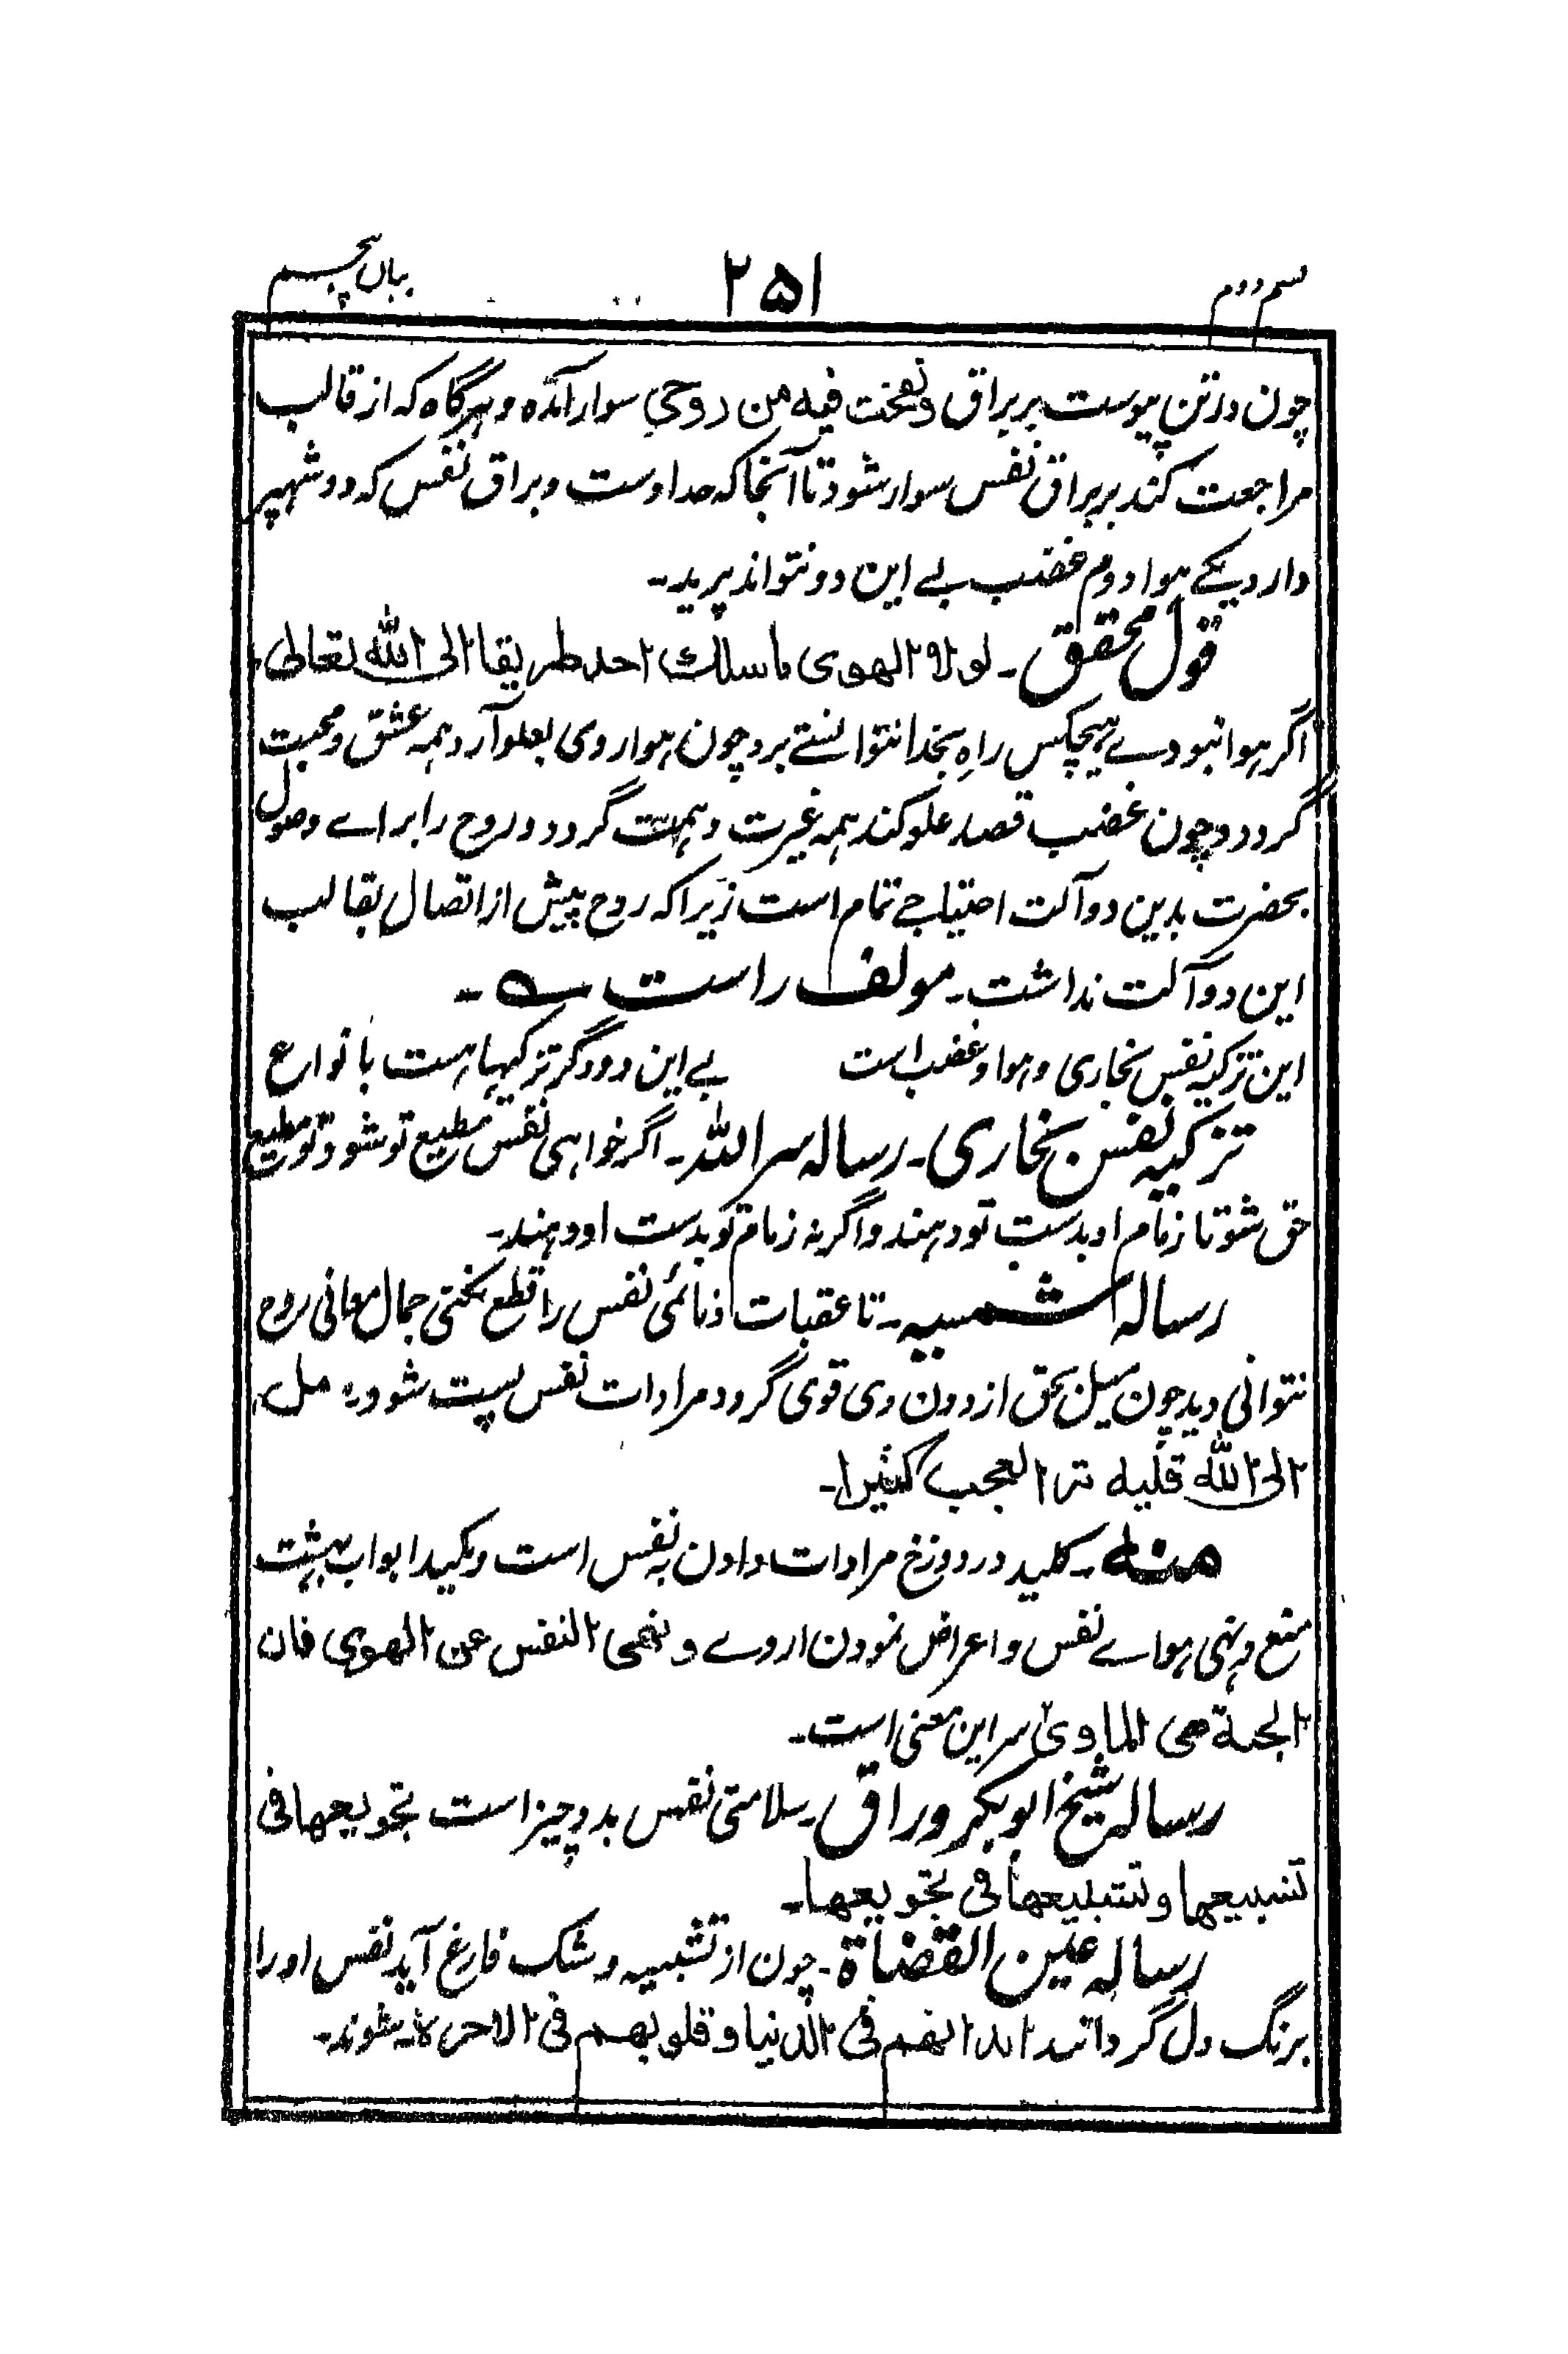 قسم دوم
۲۵۱
بیان پنجم
چون درتن پیوست بربراق ونفخت فیه من روحی سوار آمده و ہرگاه که از قالب
مراجعت کند بربراق نفس سوار شود تا آنجا که خدا وست و براق نفس که دو شہپر
دارد یکے ہوا دوم غضب بے این دو نتواند پرید۔
قول محقق۔ لولا الهوی ما سلك احد طریقا الی الله تعالی
اگر ہوا نبودے ہیچکس راهِ بخدا نتوانستے برد چون ہوا روی بعلو آرد ہمہ عشق و محبت
گردد و چون غضب قصد علو کند ہمہ غیرت و ہمت گردد و روح را براے وصول
بحضرت بدین دو آلت احتیاجے تمام است زیرا که روح پیش از اتصال بقالب
این دو آلت نداشت۔ مولف راست ؎۔
این تزکیہ نفس بخاری و ہوا و غضب است بے این دو دگر تزکیہا ہست بانواع
تزکیہ نفس بخاری۔ رسالہ سر اللہ۔ اگر خواہی نفس مطیع تو شود تو مطیع
حق شو تا زمام او بدست تو دہند و اگرنہ زمام تو بدست او دہند۔
رسالہ شمسیہ۔ تا عقبات ذمائمی نفس را قطع نکنی جمال معانی روح
نتوانی دید چون میل بحق از درون وی قوی گردد مرادات نفس پست شود مل
الی الله قلیه تر العجب کثیرا۔
منه۔ کلید در دوزخ مرادات دادن بہ نفس است و کلید ابواب بہشت
منع و نہی ہواے نفس و اعراض نمودن از وے و نهی النفس عن الهوی فان
الجنة هی الماوی سر این معنی است۔
رسالہ شیخ ابوبکر وراق۔ سلامتی نفس بدو چیز است تجویعها فی
تشبیعها و تشبیعها فی تجویعها۔
رسالہ عین القضاة۔ چون از تشبیہ و شک فارغ آید نفس او را
برنگ دل گردانند ابدانهم فی الدنیا و قلوبهم فی الاخرة شوند۔